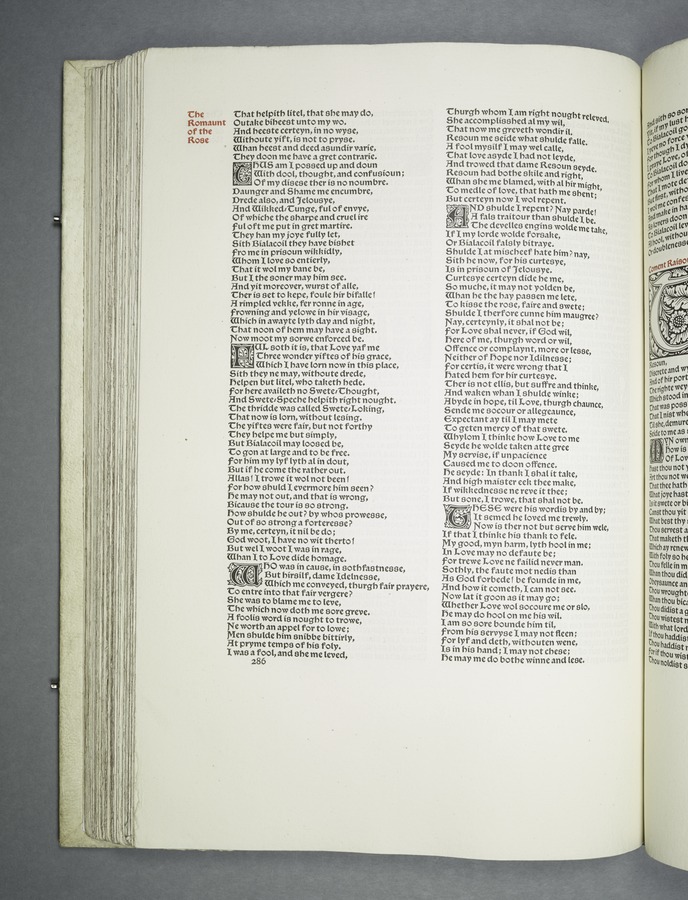 The
Romaunt
of the
Rose
That helpith litel, that she may do,
Outake biheest unto my wo.
And heeste certeyn, in no wyse,
Withoute yift, is not to pryse.
Whan heest and deed asundir varie,
They doon me have a gret contrarie.
THUS am I possed up and doun
With dool, thought, and confusioun;
Of my disese ther is no noumbre.
Daunger and Shame me encumbre,
Drede also, and Jelousye,
And Wikked-Tunge, ful of envye,
Of whiche the sharpe and cruel ire
ful oft me put in gret martire.
They han my joye fully let,
Sith Bialacoil they have bishet
fro me in prisoun wikkidly,
Whom I love so entierly,
That it wol my bane be,
But I the soner may him see.
And yit moreover, wurst of alle,
Ther is set to kepe, foule hir bifalle!
A rimpled vekke, fer ronne in age,
frowning and yelowe in hir visage,
Which in awayte lyth day and night,
That noon of hem may have a sight.
Now moot my sorwe enforced be.
FUL soth it is, that Love yaf me
Three wonder yiftes of his grace,
Which I have lorn now in this place,
Sith they ne may, withoute drede,
Helpen but litel, who taketh hede.
for here availeth no Swete-Thought,
And Swete-Speche helpith right nought.
The thridde was called Swete-Loking,
That now is lorn, without lesing.
The yiftes were fair, but not forthy
They helpe me but simply,
But Bialacoil may loosed be,
To gon at large and to be free.
for him my lyf lyth al in dout,
But if he come the rather out.
Allas! I trowe it wol not been!
for how shuld I evermore him seen?
He may not out, and that is wrong,
Bicause the tour is so strong.
How shulde he out? by whos prowesse,
Out of so strong a forteresse?
By me, certeyn, it nil be do;
God woot, I have no wit therto!
But wel I woot I was in rage,
Whan I to Love dide homage.
WHO was in cause, in sothfastnesse,
But hirsilf, dame Idelnesse,
Which me conveyed, thurgh fair prayere,
To entre into that fair vergere?
She was to blame me to leve,
The which now doth me sore greve.
A foolis word is nought to trowe,
Ne worth an appel for to lowe;
Men shulde him snibbe bittirly,
At pryme temps of his foly.
I was a fool, and she me leved,
286
Thurgh whom I am right nought releved.
She accomplisshed al my wil,
That now me greveth wondir il.
Resoun me seide what shulde falle.
A fool mysilf I may wel calle,
That love asyde I had not leyde,
And trowed that dame Resoun seyde.
Resoun had bothe skile and right,
Whan she me blamed, with al hir might,
To medle of love, that hath me shent;
But certeyn now I wol repent.
AND shulde I repent? Nay parde!
A fals traitour than shulde I be.
The develles engins wolde me take,
If I my lorde wolde forsake,
Or Bialacoil falsly bitraye.
Shulde I at mischeef hate him? nay,
Sith he now, for his curtesye,
Is in prisoun of Jelousye.
Curtesye certeyn dide he me,
So muche, it may not yolden be,
Whan he the hay passen me lete,
To kisse the rose, faire and swete;
Shulde I therfore cunne him maugree?
Nay, certeynly, it shal not be;
for Love shal never, if God wil,
Here of me, thurgh word or wil,
Offence or complaynt, more or lesse,
Neither of Hope nor Idilnesse;
for certis, it were wrong that I
Hated hem for hir curtesye.
Ther is not ellis, but suffre and thinke,
And waken whan I shulde winke;
Abyde in hope, til Love, thurgh chaunce,
Sende me socour or allegeaunce,
Expectant ay til I may mete
To geten mercy of that swete.
Whylom I thinke how Love to me
Seyde he wolde taken atte gree
My servise, if unpacience
Caused me to doon offence.
He seyde: In thank I shal it take,
And high maister eek thee make,
If wikkednesse ne reve it thee;
But sone, I trowe, that shal not be.
THESE were his wordis by and by;
It semed he loved me trewly.
Now is ther not but serve him wele,
If that I thinke his thank to fele.
My good, myn harm, lyth hool in me;
In Love may no defaute be;
for trewe Love ne failid never man.
Sothly, the faute mot nedis than
As God forbede! be founde in me,
And how it cometh, I can not see.
Now lat it goon as it may go;
Whether Love wol socoure me or slo,
He may do hool on me his wil.
I am so sore bounde him til,
from his servyse I may not fleen;
for lyf and deth, withouten wene,
Is in his hand; I may not chese;
He may me do bothe winne and lese.